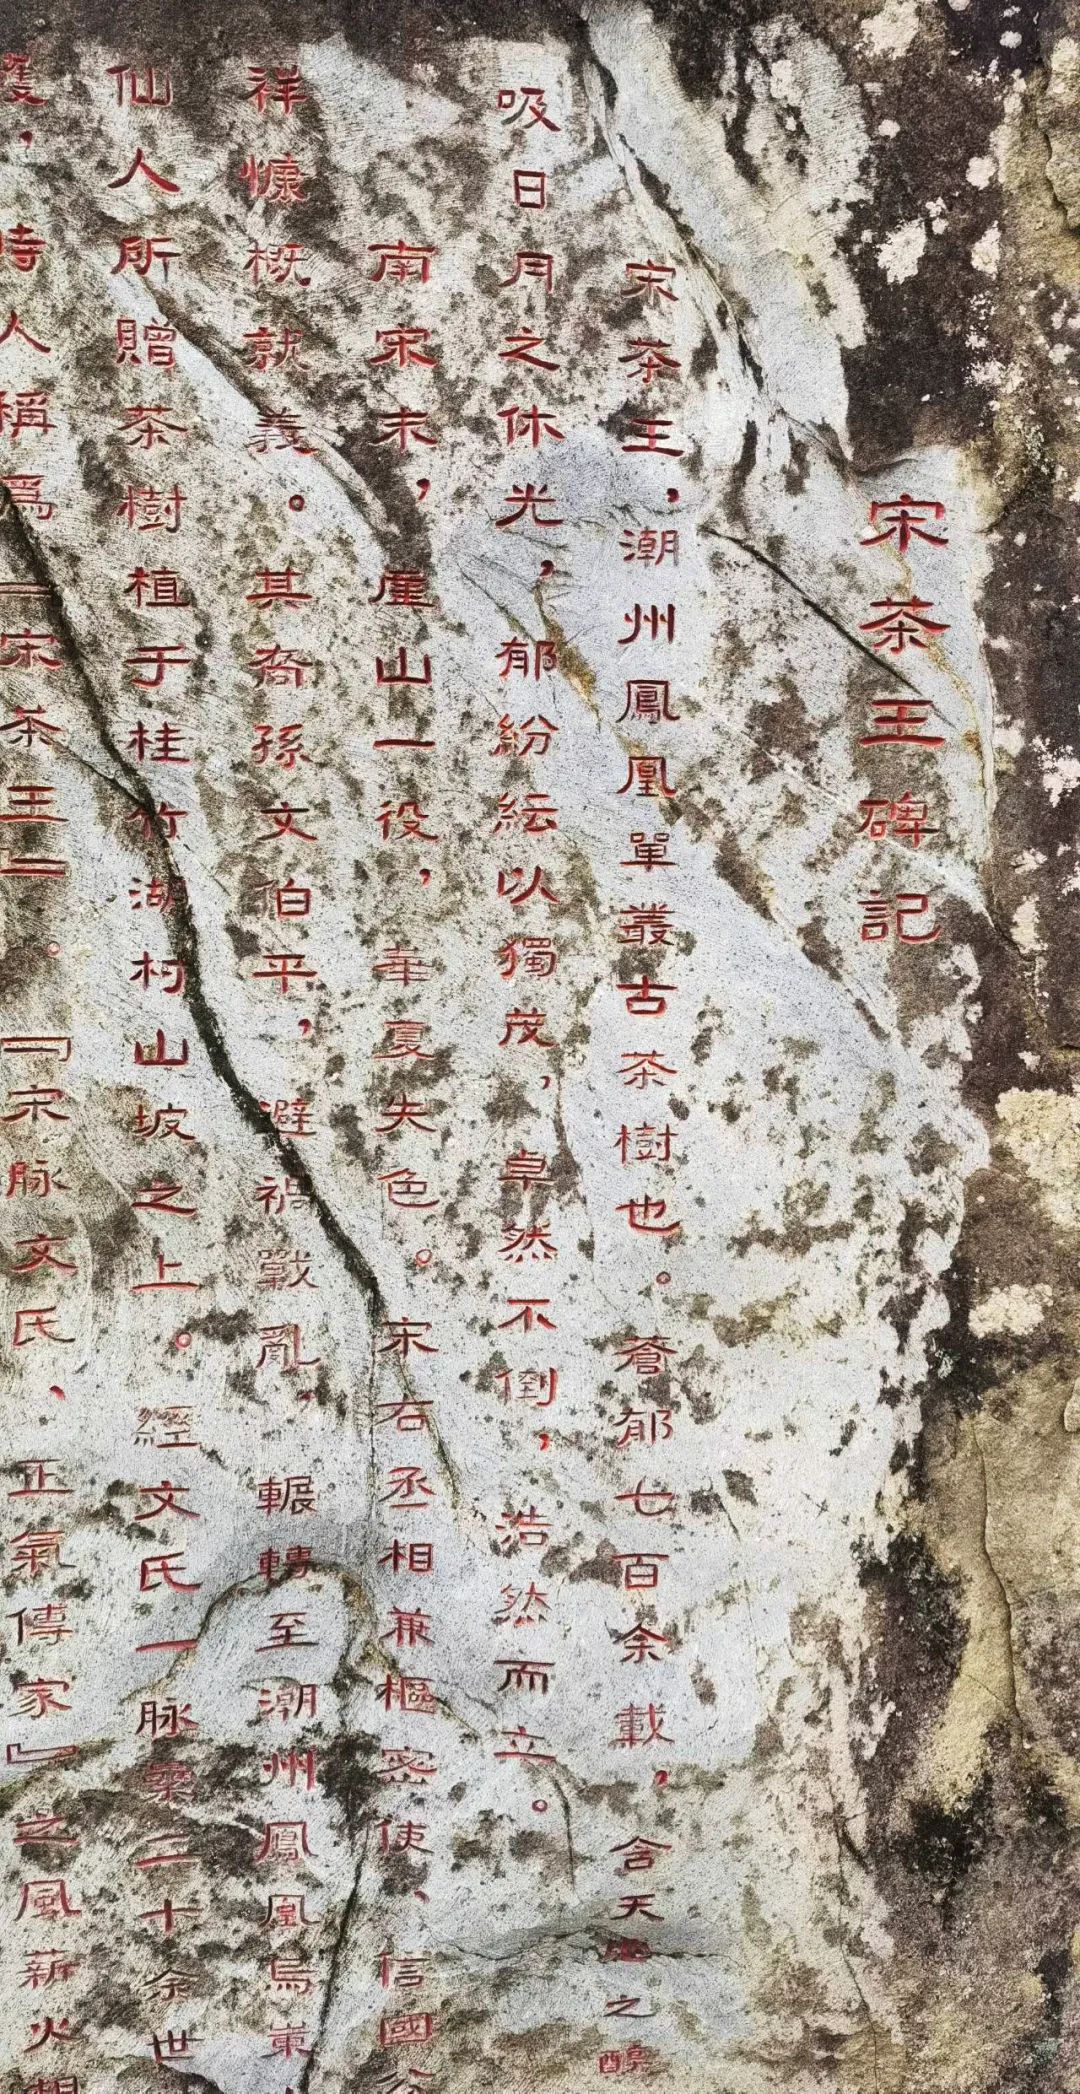 宋茶王碑記
宋茶王，潮州鳳凰單叢古茶樹也。蒼郁七百余載，含天地之醇
吸日月之休光，郁紛紜以獨茂，卓然不倒，浩然而立。
南宋末，崖山一役，華夏失色。宋右丞相兼樞密使、信國公
祥慷慨就義。其裔孫文伯平，避禍戰亂，輾轉至潮州鳳凰烏崬
仙人所贈茶樹植于桂竹湖村山坡之上。經文氏一脉 二十余世
護，時人稱爲『宋茶王』。『宋脉文氏、正氣傳家』之風薪火相